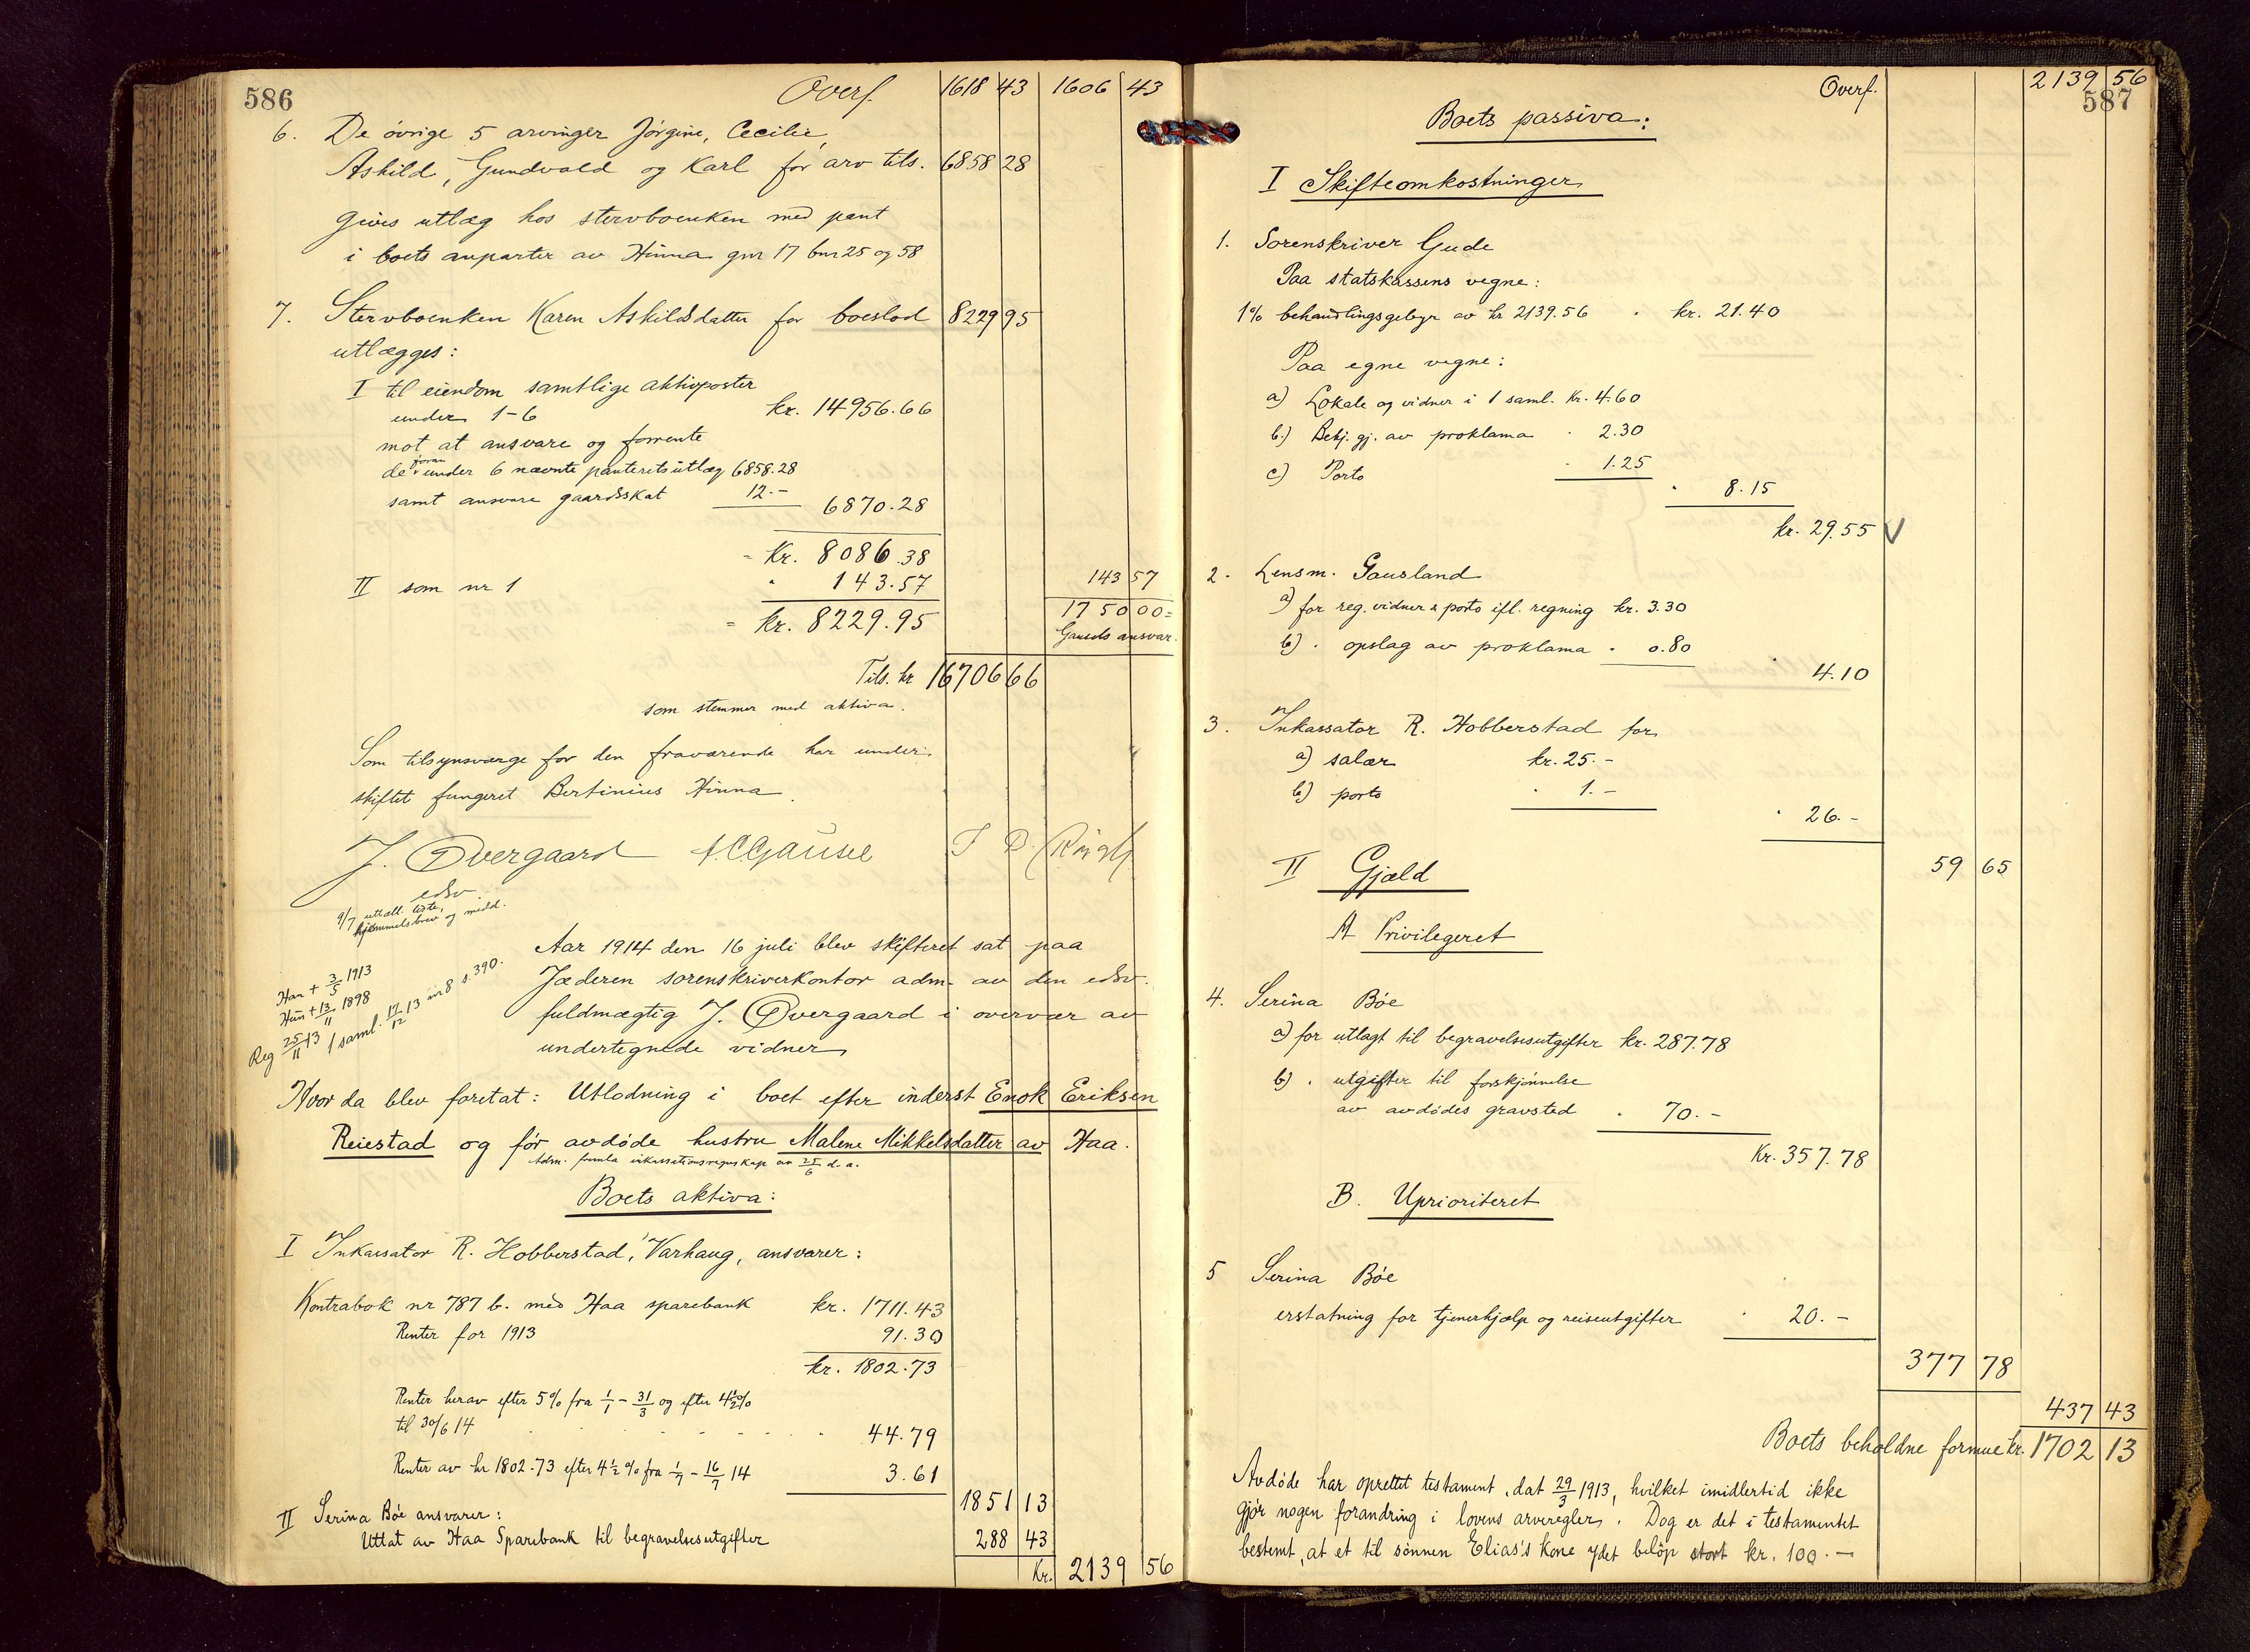 586
Overf. 1618 43 1606 43
6. De øvrige 5 arvinger Jørgine, Cecilie,
Askild, Gundvald og Karl for arv tils. 6858 28
Gives utlæg hos stervboenken med pant
i boets anparter av Hinna gnr 17 bnr 25 og 58
7. Stervboenken Karen Askildsdatter for boeslod 8229 95
utlægges:
I til eiendom samtlige aktivposter
under 1-6 kr. 14956.66
mot at ansvare og forrente
de foran under 6 nævnte panteretsutlæg 6858.28
samt ansvare gaardsskat 12.- 6870.28
= Kr. 8086.38
II som nr 1 " 143.57 143 57
= kr. 8229.95 1750 00 =
Gausels ansvar.
Tils. kr 16706 66
som stemmer med aktiva.
Som tilsynsværge for den fraværende har under
skiftet fungeret Bertinius Hinna.
J. Øvergaard A.C. Gausel
edsv
9/7 uttatt. liste,
hjemmelsbrev og medd.
Aar 1914 den 16 juli blev skifteret sat paa
Jæderen sorenskriverkontor adm. av den edsv.
fuldmægtig J. Øvergaard i overvær av
undertegnede vidner
Han + 3/5 1913
Hun + 13/11 1898
Reg 25/11 13 1 saml. 17/12 13 nr 8 s. 390.
Hvor da blev foretat: Utlodning i boet efter inderst Enok Eriksen
Reiestad og før avdøde hustru Malene Mikkelsdatter av Haa.
Adm. fremla inkassationsregnskap av 25/6 d. a.
Boets aktiva:
I Inkassator R. Hobberstad, Varhaug, ansvarer:
Kontrabok nr 787 b. med Haa sparebank kr. 1711.43
Renter for 1913 91.30
kr. 1802.73
Renter herav efter 5% fra 1/1 - 31/3 og efter 4 1/2%
til 30/6 14 44.79
Renter av kr 1802.73 efter 4 1/2 % fra 1/7 - 16/7 14 3.61
1851 13
II Serina Bøe ansvarer:
Uttat av Haa Sparebank til begravelsesutgifter 288 43
Kr. 2139 56
587
Overf. 2139 56
Boets passiva:
I Skifteomkostninger
1. Sorenskriver Gude
Paa statskassens vegne:
1% behandlingsgebyr av kr 2139.56 . kr. 21.40
Paa egne vegne:
a) Lokale og vidner i 1 saml. Kr. 4.60
b.) Bekj. gj. av proklama . 2.30
c) Porto . 1.25
" 8.15
kr. 29.55 V
2. Lensm. Gausland
a) for reg. vidner & porto ifl. regning kr. 3.30
b) . opslag av proklama . 0.80
" 4.10
3. Inkassator R. Hobberstad for
a) salær kr. 25.-
b) porto . 1.-
" 26.-
59 65
II Gjæld
A Privilegeret
4. Serina Bøe
a) for utlagt til begravelsesutgifter kr. 287.78
b) . utgifter til forskjønnelse
av avdødes gravsted . 70.-
Kr. 357.78
B. Uprioriteret
5 Serina Bøe
erstatning for tjenerhjælp og reiseutgifter " 20.-
377 78
437 43
Boets beholdne formue kr. 1702 13
Avdøde har oprettet testament, dat 29/3 1913, hvilket imidlertid ikke
gjør nogen forandring i lovens arveregler. Dog er det i testamentet
bestemt, at et til sønnen Elias's kone ydet beløp stort kr. 100.-